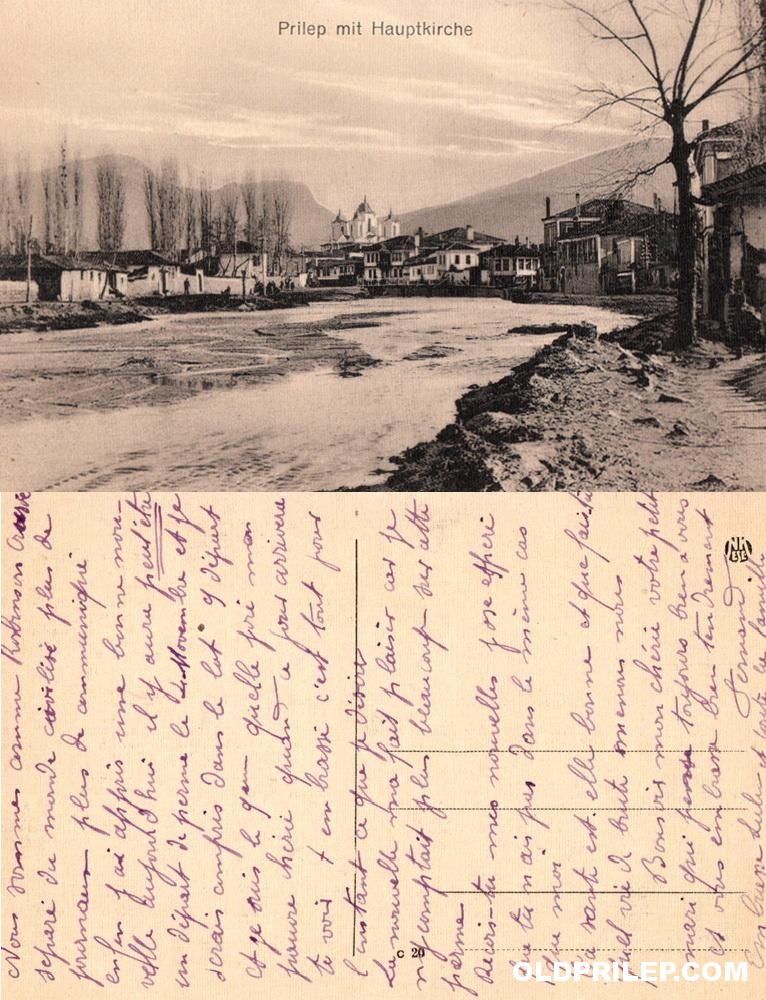 Prilep mit Hauptkirche
Nous sommes comme Robinson Crusoé
separé du monde civilisé plus de
journaux plus de communiqué
enfin j'ai appris une bonne nou-
velle aujourd'hui il y aura peut être
un départ de perme le Novembre et je
serais compris dans le lot 9 départ
et je suis le 9em quelle joie mon
pauvre chérie quand ce jour arrivera
te voir t embrassé c'est tout pour
l'instant ce que je désire
La nouvelle ma fait plaisir car je
ny comptait plus beaucoup sur cette
perme
Recois-tu mes nouvelles j'ose espéré
que tu nais pas dans le même cas
que moi
ta santé est elle bonne et que fais tu
quel vie de brute menons nous
Bonsoir mon chérie votre petit
mari qui pense toujours bien a vous
et vous embrasse bien tendrement
Fernand
embrasse Lili et toute la famille
NK
C 20
OLDPRILEP.COM